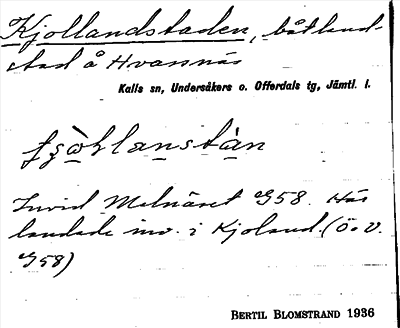 Kjollandstaden, båtland-
stad å Hvannäs
Kalls sn, Undersåkers o. Offerdals tg, Jämtl. l.
Invid Melnäset G58. Här
landade inv. i Kjoland. (Ö. v.
G58)
BERTIL BLOMSTRAND 1936